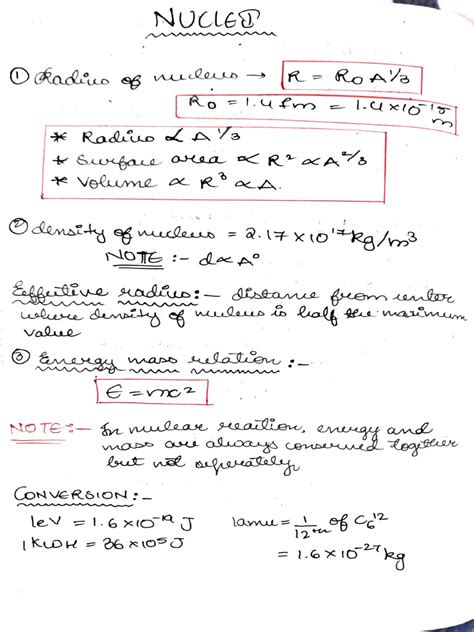 NUCLEI
① Radius of nucleus → R = R₀A^1/3
R₀ = 1.4 fm = 1.4×10⁻¹⁵ m
* Radius ∝ A^1/3
* Surface area ∝ R² ∝ A^2/3
* Volume ∝ R³ ∝ A.
② density of nucleus = 2.17 × 10¹⁷ kg/m³
NOTE :- d∝A⁰
Effective radius:— distance from center
where density of nucleus is half the maximum
value
③ Energy mass relation :-
E = mc²
NOTE:— In nuclear reaction, energy and
mass are always conserved together
but not seperately
CONVERSION:-
1eV = 1.6×10⁻¹⁹ J
1 KWH = 36×10⁵ J
1amu = 1/12th of C₆¹²
= 1.6×10⁻²⁷ kg